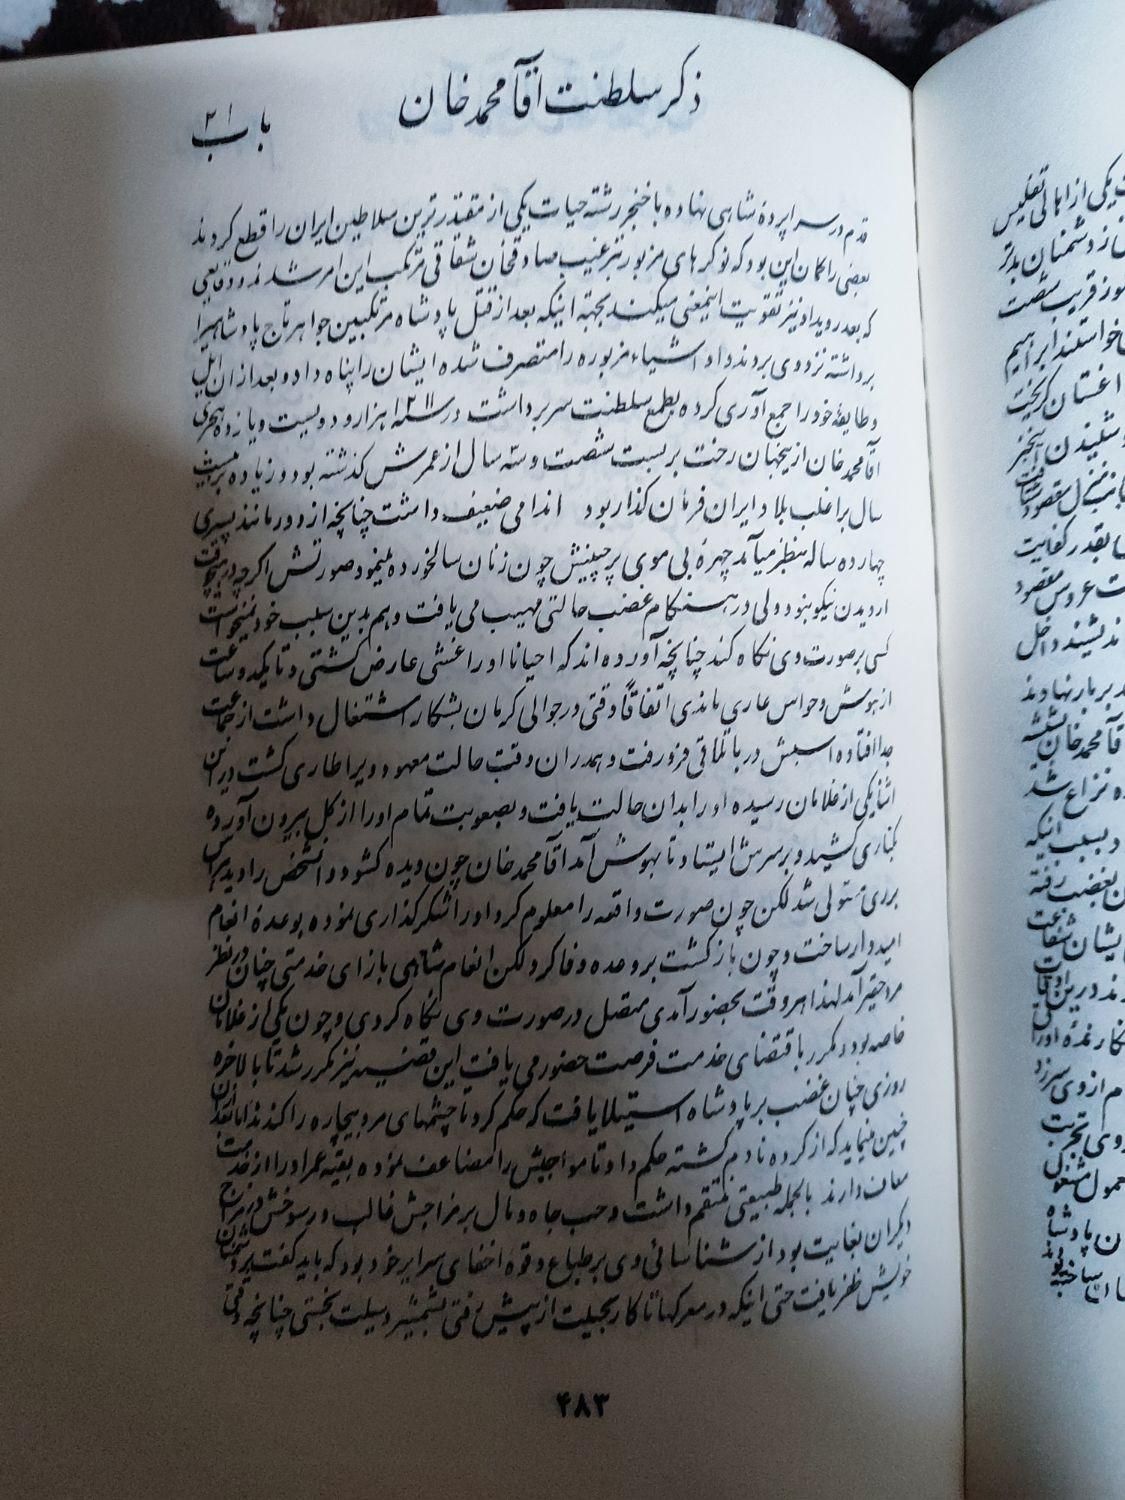 ذکر سلطنت آقا محمد خان
باب ۲۱
قدم در سراپردهٔ شاهی نهاده با خنجر رشتهٔ حیات یکی از مقتدرترین سلاطین ایران را قطع کردند
بعضی را کمان این بود که نوکرهای مزبور بترغیب صادقخان شقاقی مرتکب این امر شدند و وقایعی
که بعد رویداد نیز تقویت اینمعنی میکند بجهته اینکه بعد از قتل پادشاه مرتکبین جواهر تاج پادشاهیرا
برداشته نزد وی بردند و او اشیاء مزبوره را متصرف شده ایشان را پناه داد و بعد از ان ایل
و طایفهٔ خود را جمع آوری کرده بطمع سلطنت سر برداشت در سنه ۱۲۱۱ هزار و دویست و یازده هجری
آقا محمد خان ازینجهان رخت بر بست شصت و سه سال از عمرش کذشته بود و زیاده بر بیست
سال بر اغلب بلاد ایران فرمان کذار بود اندامی ضعیف داشت چنانچه از دور مانند پسری
چهارده ساله بنظر میآمد چهرهٔ بی موی پرچینش چون زنان سالخورده مینمود و صورتش اکرچه در هیچوقت
از دیدن نیکو نبود ولی در هنکام غضب حالتی مهیب می یافت و هم بدین سبب خود نمیخواست
کسی بر صورت وی نکاه کند چنانچه آورده اند که احیانا او را غشی عارض کشتی و تا یکدو ساعت
از هوش و حواس عاری ماندی اتفاقاً وقتی در حوالی کرمان بشکار اشتغال داشت از جماعت
جدا افتاده اسبش در باتلاقی فرو رفت و همدران وقت حالت معهود ویرا طاری کشت در این
اثنا یکی از غلامان رسیده او را بدان حالت یافت و بصعوبت تمام او را از کل بیرون آورده
بکناری کشید و بر سرش ایستاد تا بهوش آمد آقا محمد خان چون دیده کشود و آنشخص را دید هراس
بر وی مستولی شد لکن چون صورت واقعه را معلوم کرد او را شکرکذاری نموده بوعدهٔ انعام
امیدوار ساخت و چون بازکشت بر وعده وفا کرد لکن انعام شاهی بازای خدمتی چنان در نظر
مرد حقیر آمد لهذا هر وقت بحضور آمدی متصل در صورت وی نکاه کردی و چون یکی از غلامان
خاصه بود و مکرر باقتضای خدمت فرصت حضور می یافت این قضیه نیز مکرر شد تا بالاخره
روزی چنان غضب بر پادشاه استیلا یافت که حکم کرد تا چشمهای مرد بیچاره را کندند اما بعد از ان
چنین مینماید که از کرده نادم کشته حکم داد تا مواجبش را مضاعف نموده بقیه عمر او را از خدمت
معاف دارند بالجمله طبیعتی منتقم داشت و حب جاه و مال بر مزاجش غالب و رسوخش در مزاج
دیکران بغایت بود از شناسائی وی بر طباع و قوهٔ اخفای سرایر خود بود که باید کفت بر دشمنان
خویش ظفر یافت حتی اینکه در معرکها تا کار بحیلت از پیش رفتی بشمشیر وسیلت نجستی چنانچه وقتی
۴۸۳